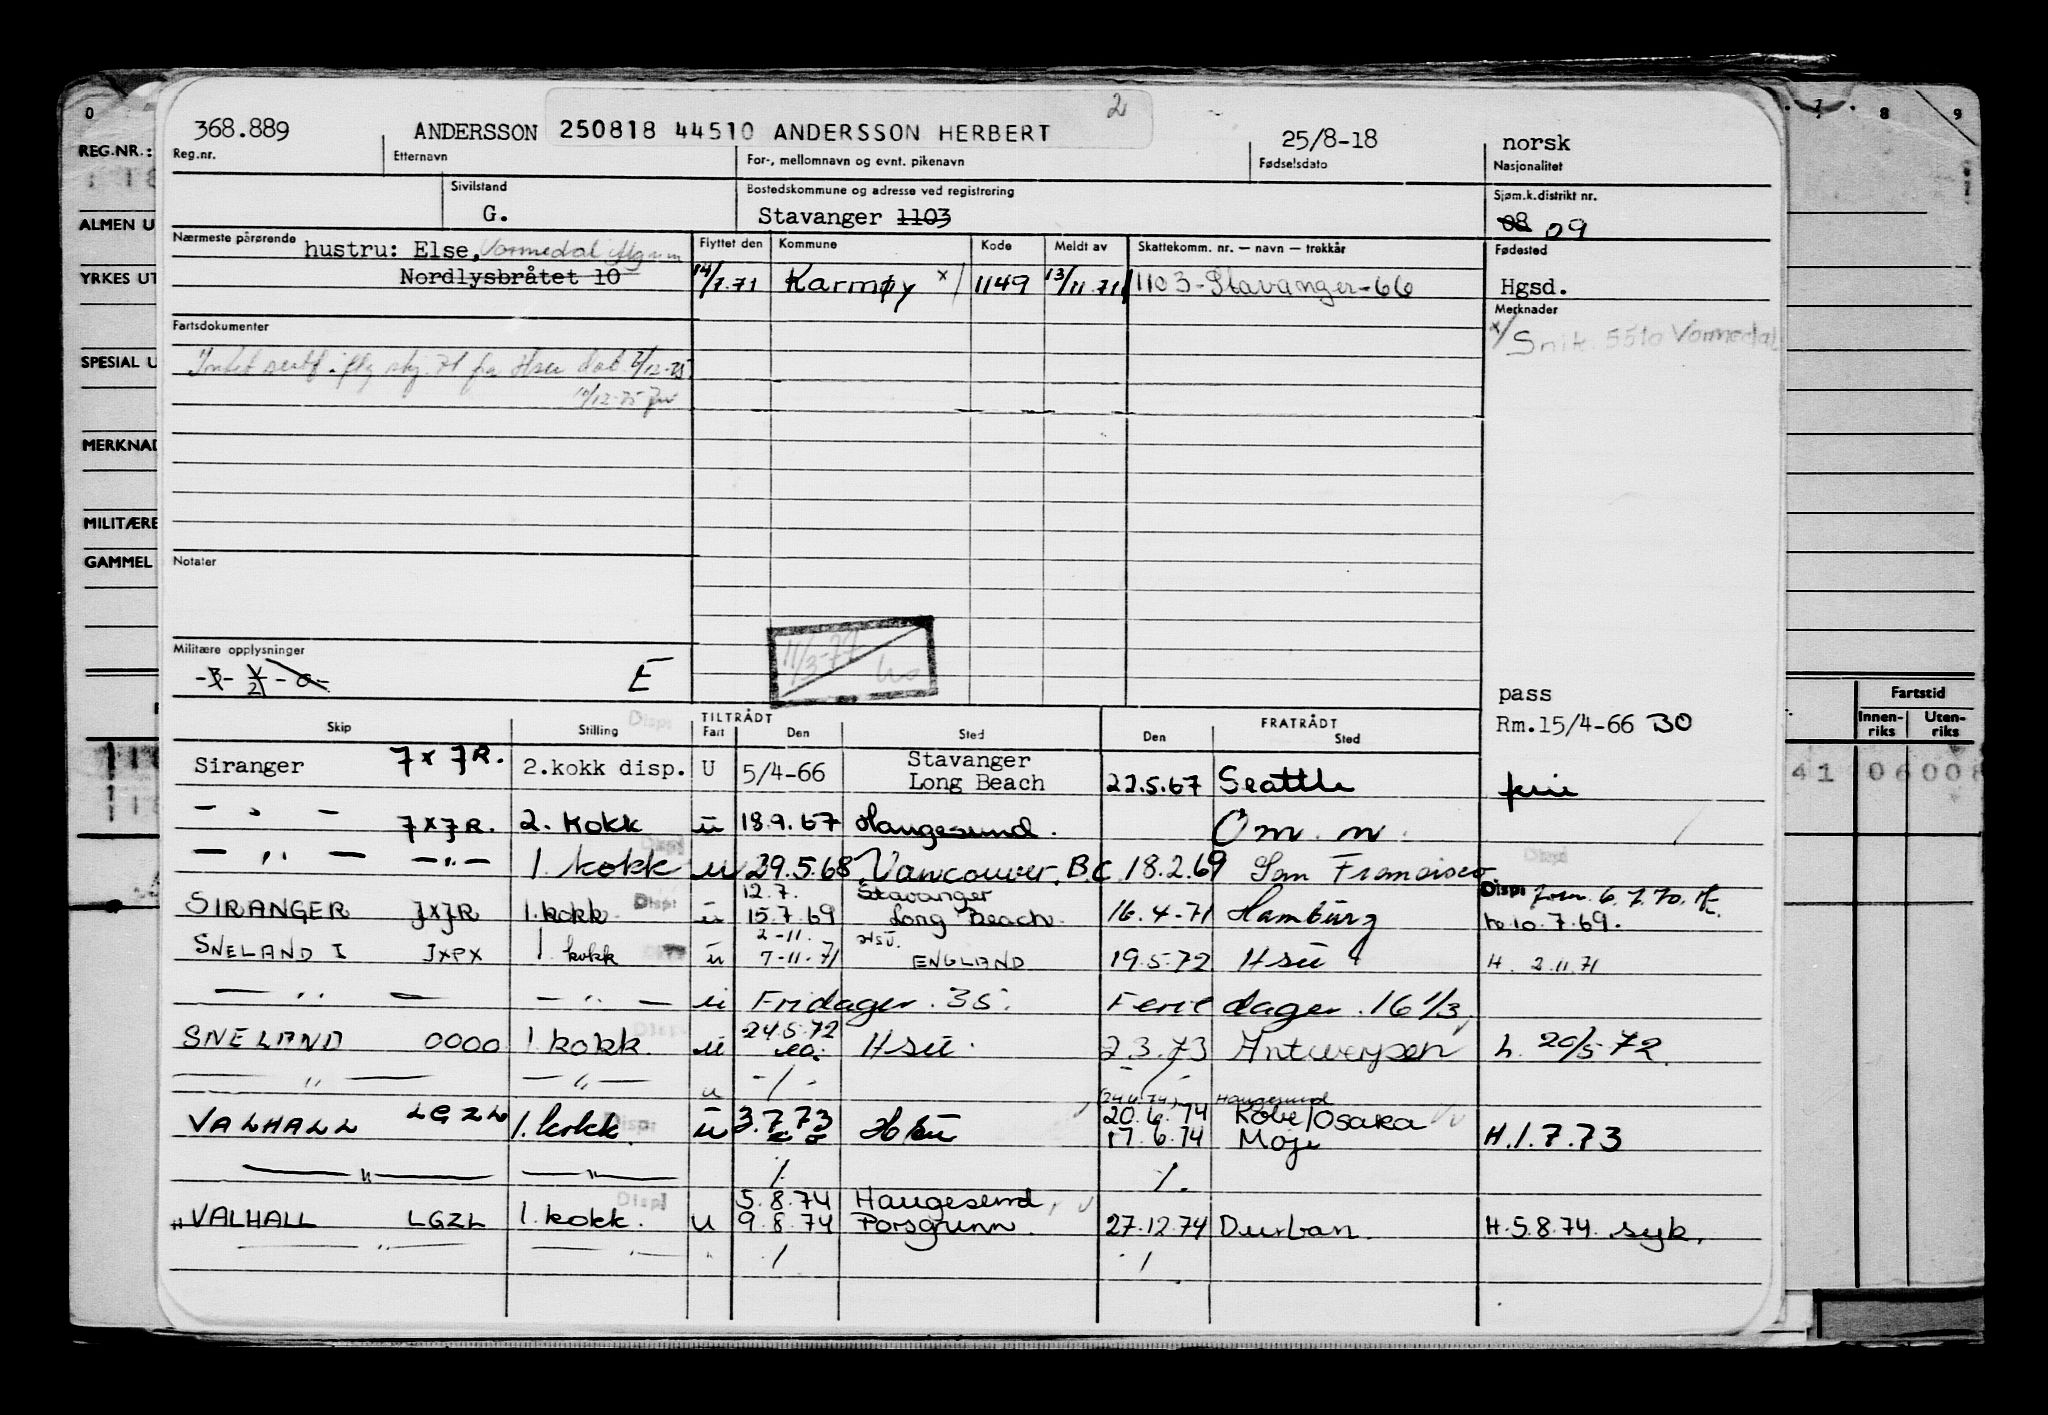 2
368.889 ANDERSSON 250818 44510 ANDERSSON HERBERT 25/8-18 norsk
Reg.nr. Etternavn For-, mellomnavn og evnt. pikenavn Fødselsdato Nasjonalitet
Sivilstand Bostedskommune og adresse ved registrering Sjøm.k.distrikt nr.
G. Stavanger 1103 08 09
Nærmeste pårørende Flyttet den Kommune Kode Meldt av Skattekomm. nr. — navn — trekkår Fødested
hustru: Else, Vormedal
Nordlysbråtet 10 14/7.71 Karmøy x/ 1149 13/11.71 1103-Stavanger-66 Hgsd.
Fartsdokumenter Merknader
x/ Snik. 5510 Vormedal
11/12-75
Notater
Militære opplysninger
E
11/3-77
pass
Rm.15/4-66 BO
Skip Stilling TILTRÅDT Fart Den Sted FRATRÅDT Den Sted
Siranger JXJR. 2.kokk disp. U 5/4-66 Stavanger Long Beach 22.5.67 Seattle
— " — JXJR. 2. kokk u 18.9.67 Haugesund. Om. m.
— " — — " — 1. kokk u 29.5.68 Vancouver. B.C 18.2.69 San Francisco
SIRANGER JXJR 1. kokk Disp: u 12.7. 15.7.69 Stavanger Long Beach. 16.4-71 Hamburg Disp: 6.7.70. 10.7.69.
SNELAND I JXPX 1 kokk u 2-11. 7-11-71 HSU. ENGLAND 19.5.72 Hsu H. 2.11.71
— " — — " — u Fridager. 35. Ferie dager. 16 1/3
SNELAND OOOO 1. kokk. u 24.5.72 Hsu. 2.3.73 Antwerpen h. 20/5-72.
— " — — " — u -/- -/-
VALHALL LGZL 1. kokk. Disp: u 3.7.73 Hsu (24.6.74) Haugesund 20.6.74 Kobe/Osaka 17.6.74 Moji H.1.7.73
— " — — " — /. /.
VALHALL LGZL 1. kokk. Disp: u 5.8.74 Haugesund, 9.8.74 Porsgrunn. 27.12.74 Durban. H.5.8.74. syk.
— " — — " — " / /
0
REG.NR.:
ALMEN U
YRKES UT
SPESIAL U
MERKNAD
MILITÆRE
GAMMEL
7 8 9
Fartstid
Innen-riks Uten-riks
41 06008